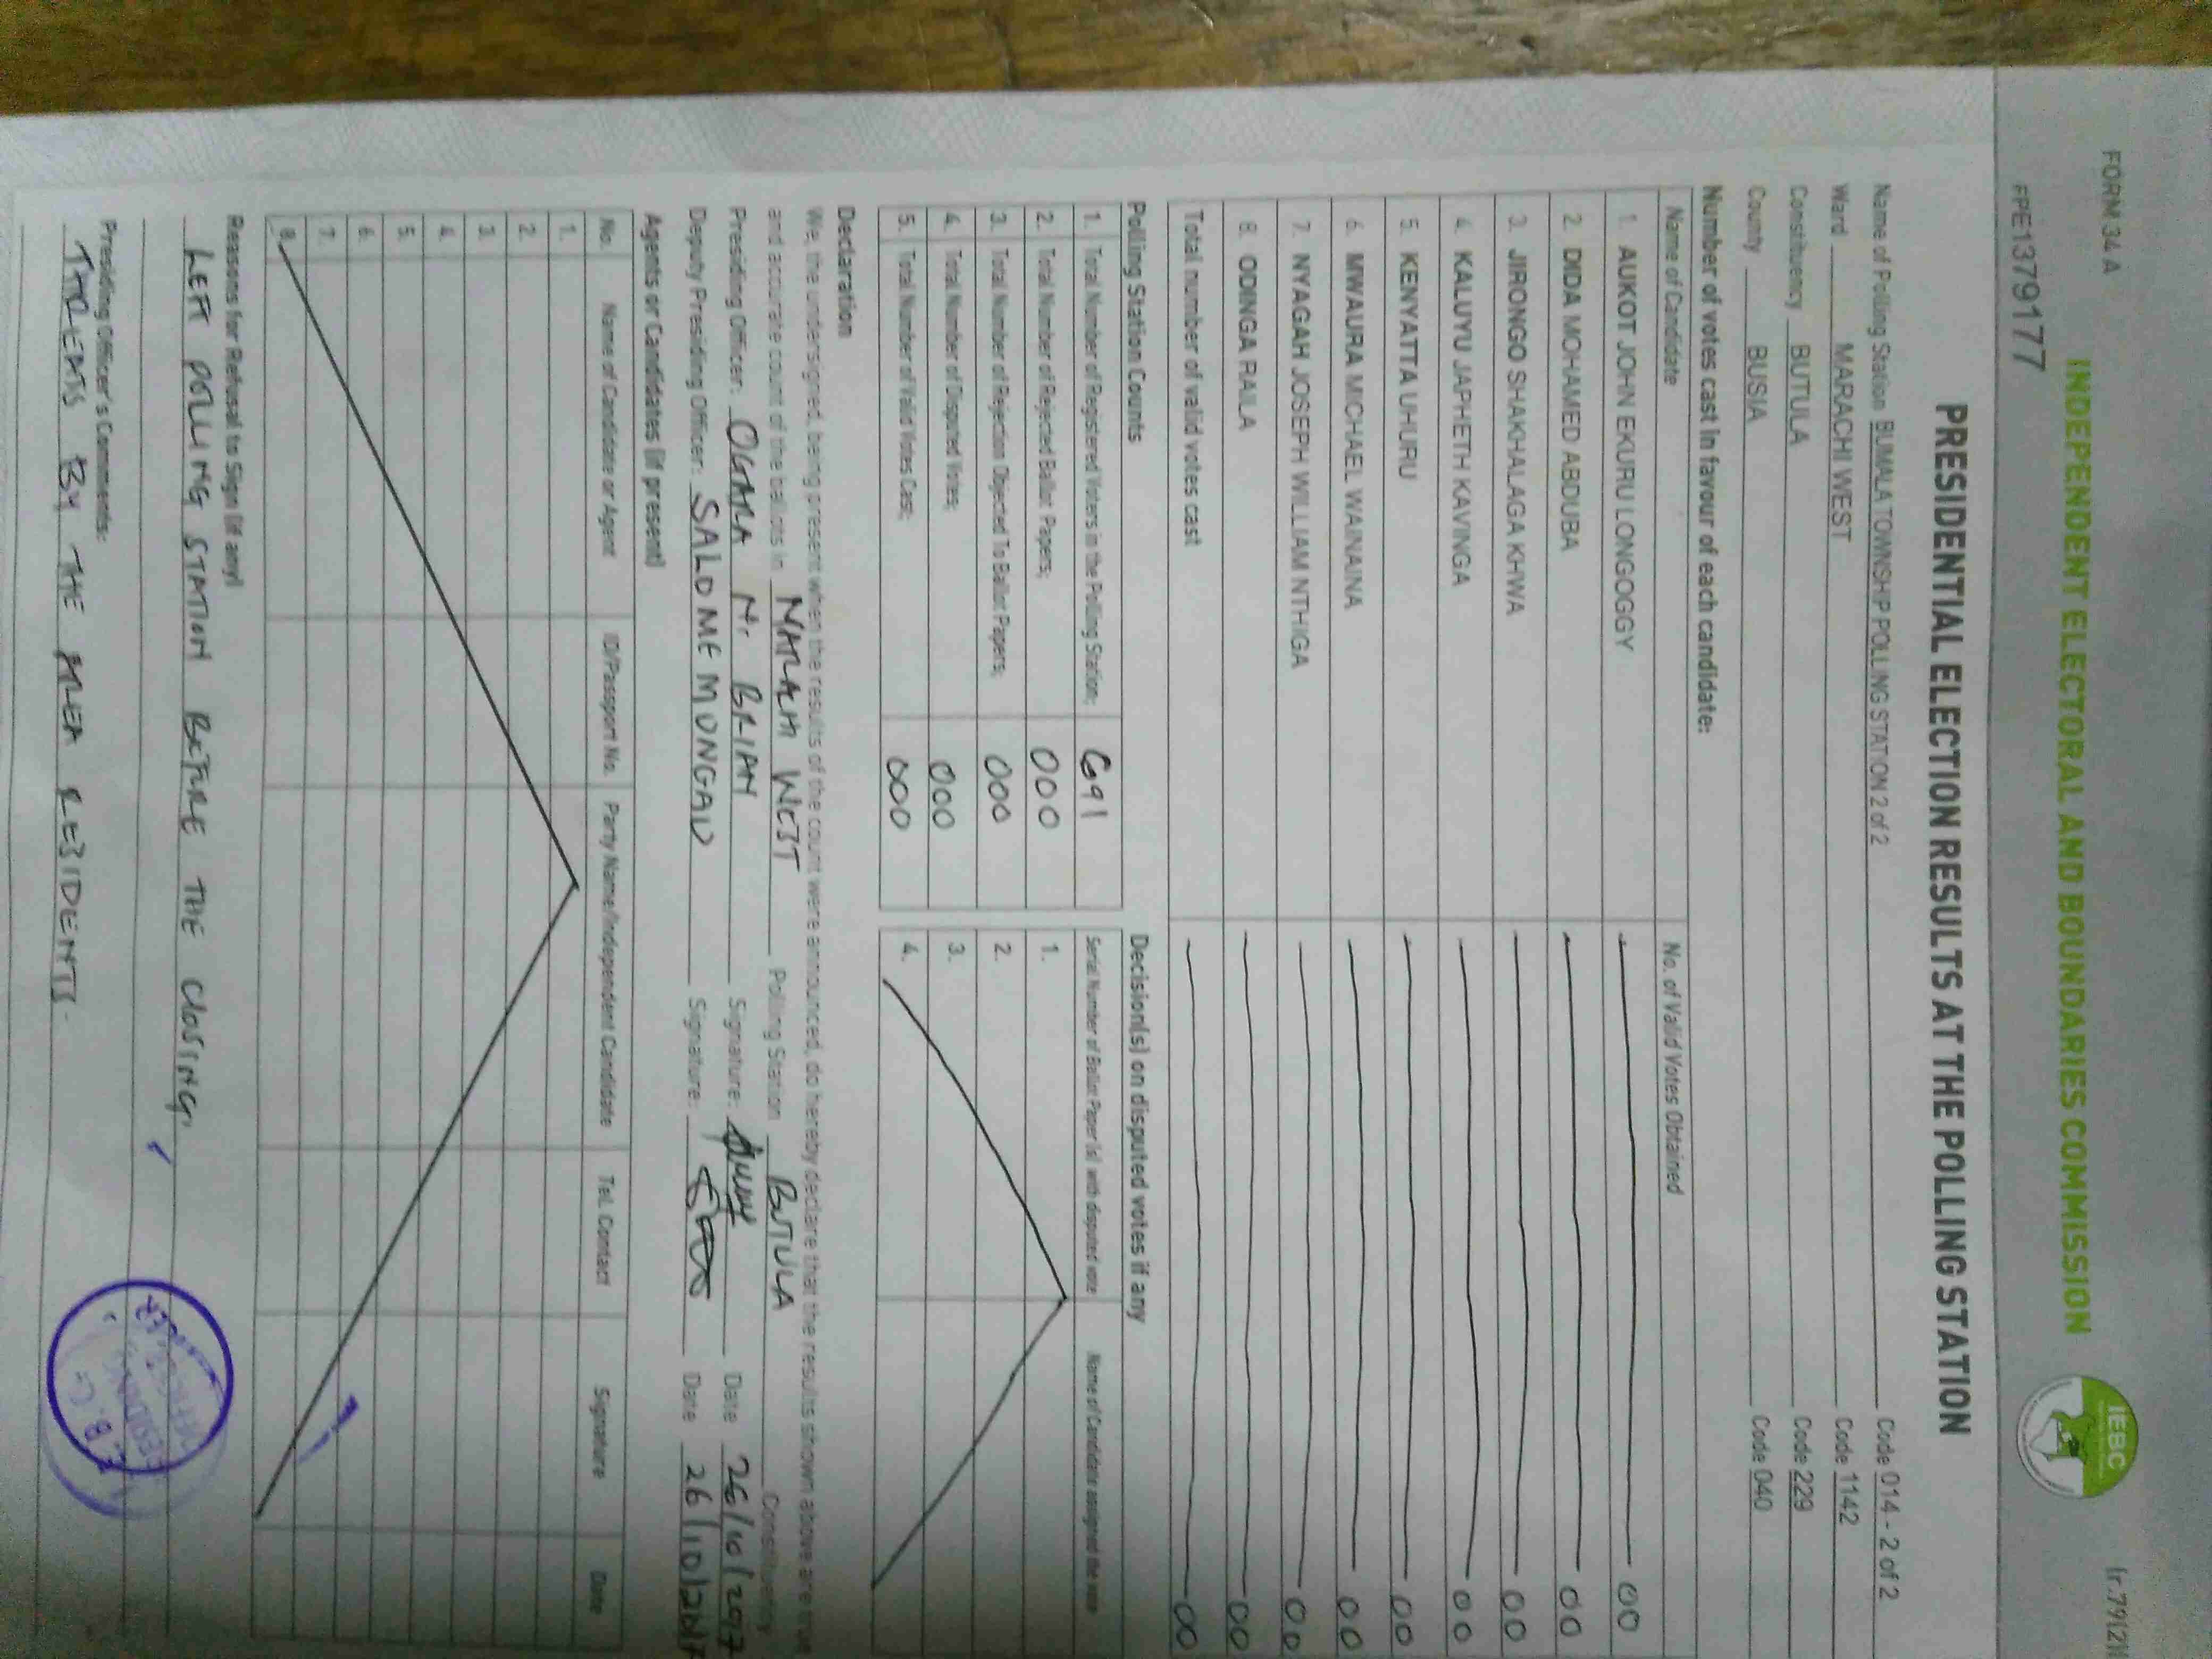 FORM 34 A
(r.79(2)(
INDEPENDENT ELECTORAL AND BOUNDARIES COMMISSION
IEBC
FPE1379177
PRESIDENTIAL ELECTION RESULTS AT THE POLLING STATION
Name of Polling Station BUMALA TOWNSHIP POLLING STATION 2 of 2 Code 014 - 2 of 2
Ward MARACHI WEST Code 1142
Constituency BUTULA Code 229
County BUSIA Code 040
Number of votes cast in favour of each candidate:
Name of Candidate No. of Valid Votes Obtained
1. AUKOT JOHN EKURU LONGOGGY 00
2. DIDA MOHAMED ABDUBA 00
3. JIRONGO SHAKHALAGA KHWA 00
4. KALUYU JAPHETH KAVINGA 00
5. KENYATTA UHURU 00
6. MWAURA MICHAEL WAINAINA 00
7. NYAGAH JOSEPH WILLIAM NTHIGA 00
8. ODINGA RAILA 00
Total number of valid votes cast 00
Polling Station Counts
1. Total Number of Registered Voters in the Polling Station; 691
2. Total Number of Rejected Ballot Papers; 000
3. Total Number of Rejection Objected To Ballot Papers; 000
4. Total Number of Disputed Votes; 000
5. Total Number of Valid Votes Cast; 000
Decision(s) on disputed votes if any
Serial Number of Ballot Paper(s) with disputed vote Name of Candidate assigned the vote
1.
2.
3.
4.
Declaration
We, the undersigned, being present when the results of the count were announced, do hereby declare that the results shown above are true
and accurate count of the ballots in MARACHI WEST Polling Station BUTULA Constituency
Presiding Officer: OGARA N. BRIAN Signature: Date 26/10/2017
Deputy Presiding Officer: SALOME MONGAU Signature: Date 26/10/2017
Agents or Candidates (if present)
No. Name of Candidate or Agent ID/Passport No. Party Name/Independent Candidate Tel. Contact Signature Date
1.
2.
3.
4.
5.
6.
7.
8.
Reasons for Refusal to Sign (if any)
LEFT POLLING STATION BEFORE THE CLOSING,
Presiding Officer's Comments:
THREATS BY THE AREA RESIDENTS.